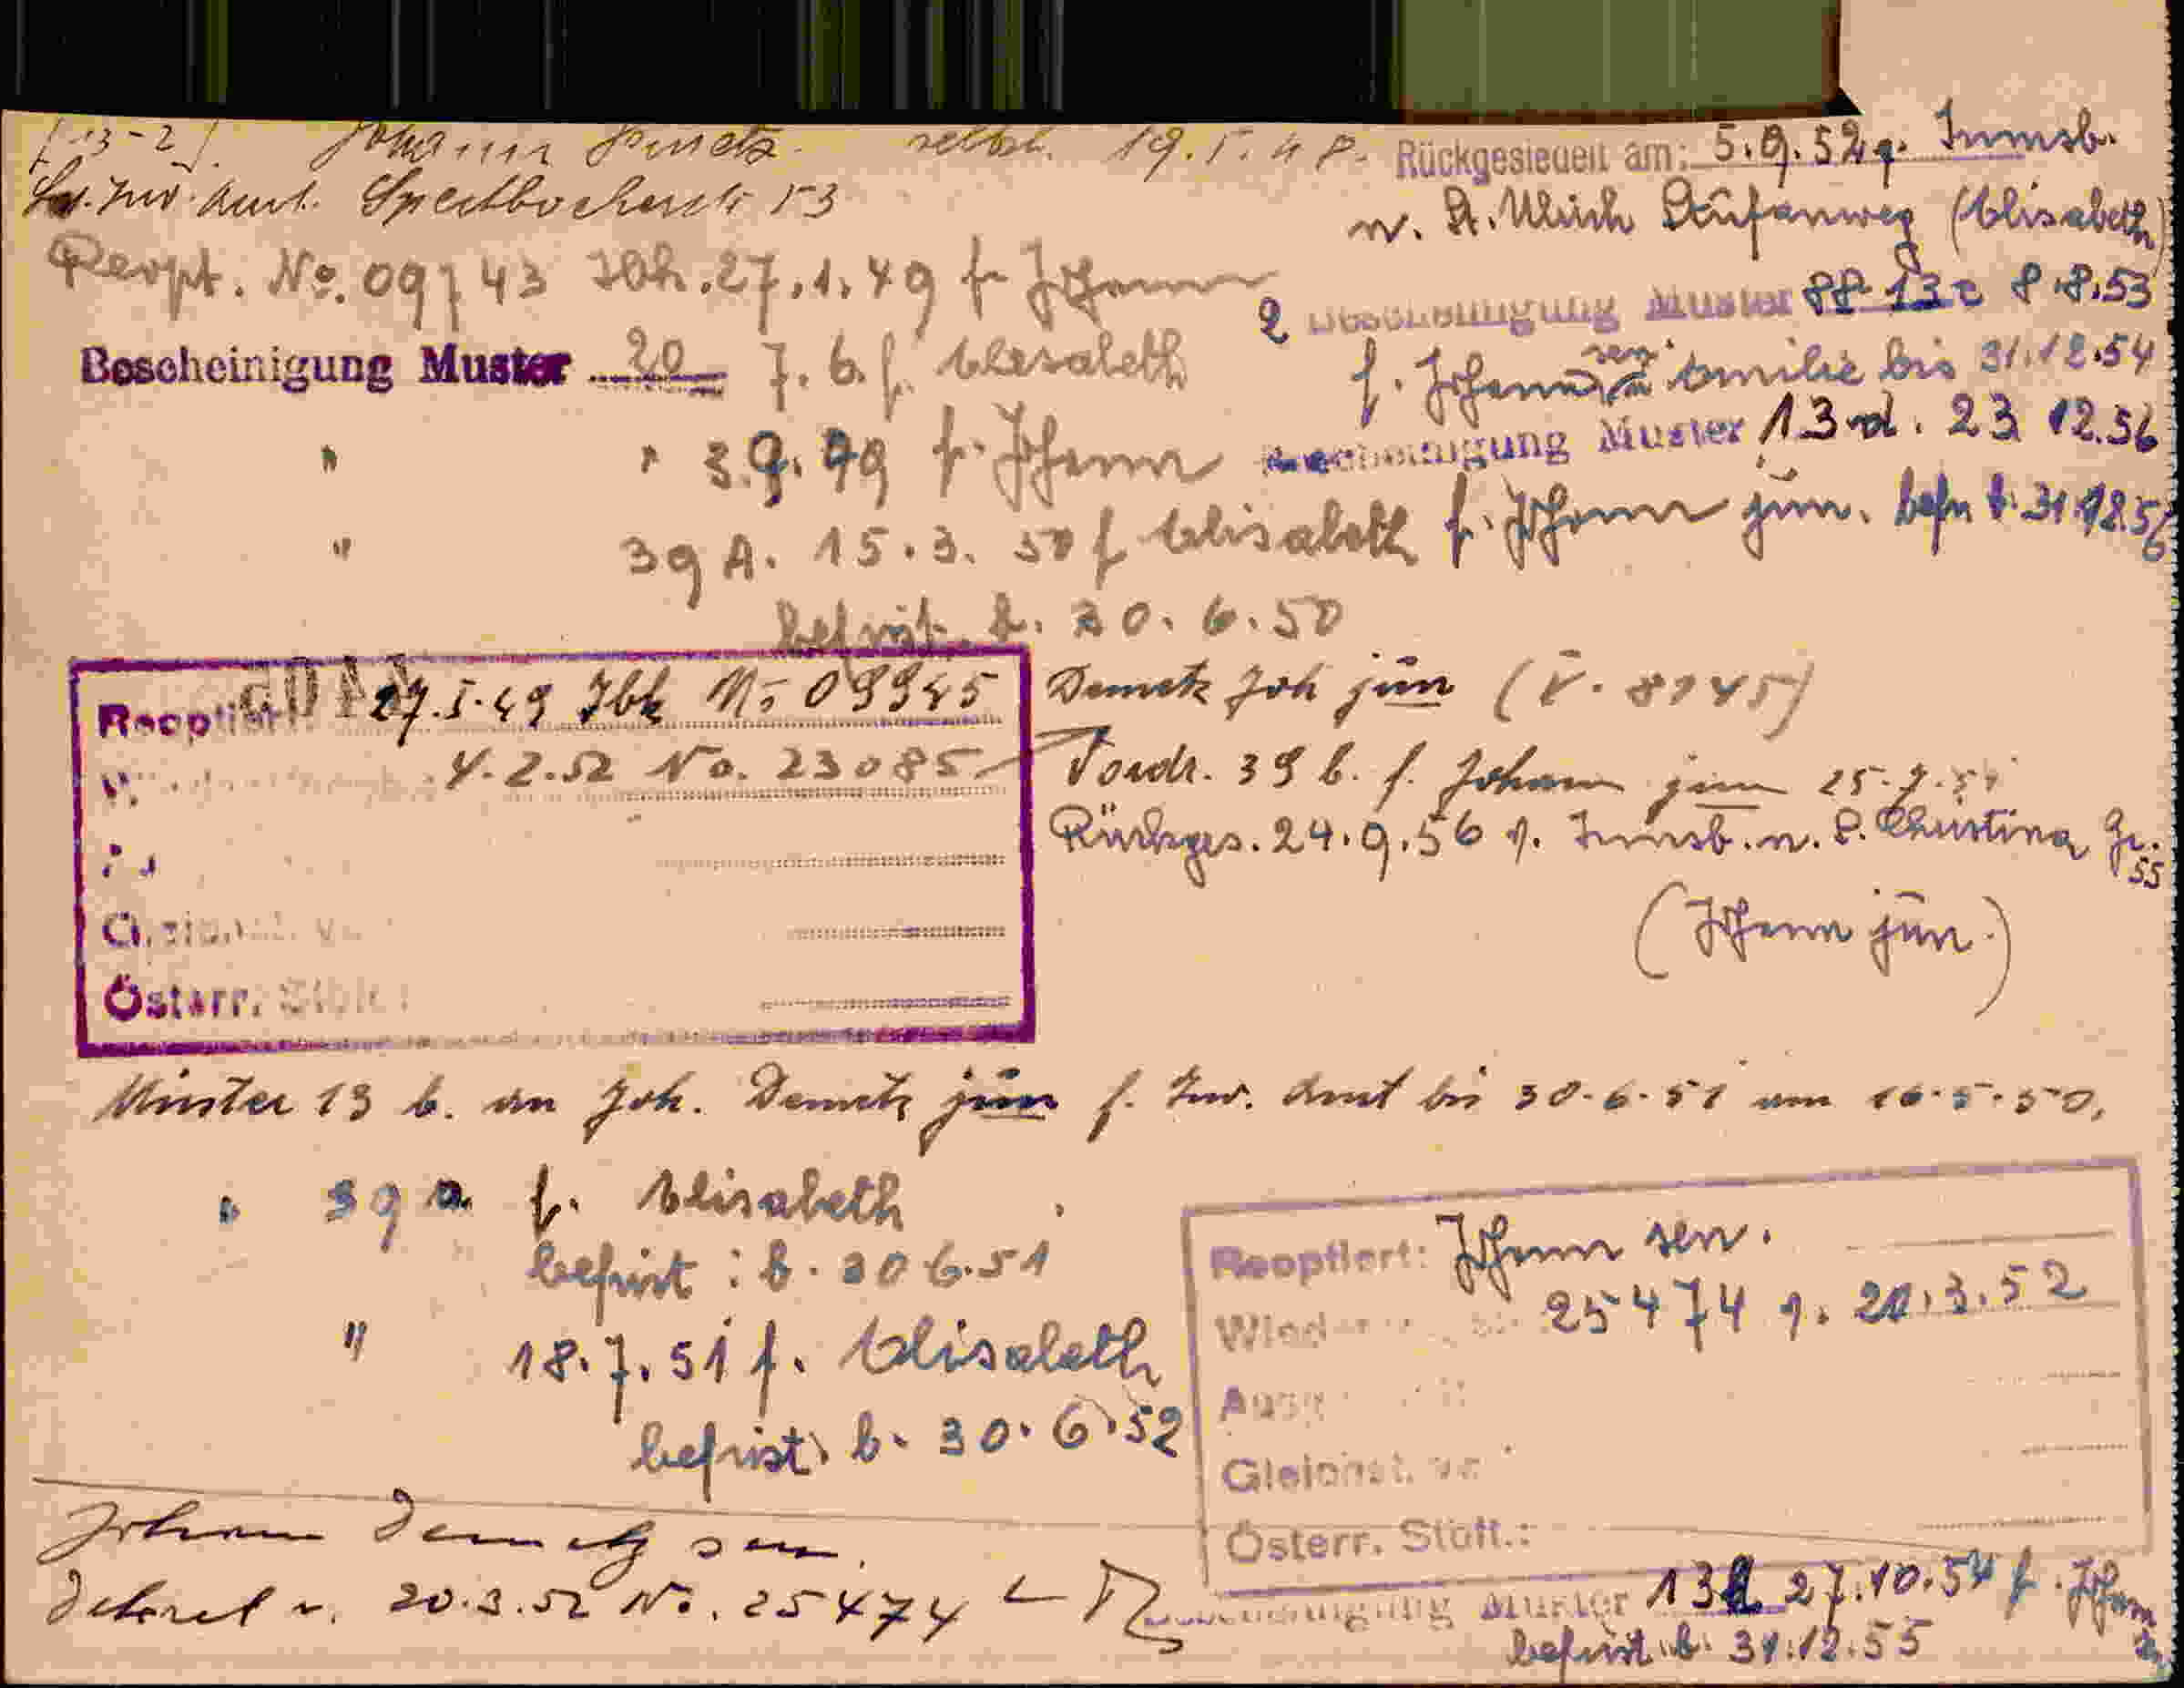 [13-2]. Johann Demetz selbst. 19.5.48.
Speckbacherstr 53
Reopt. No. 09743 Ibk. 27.1.49 f. Johann
Bescheinigung Muster 20 7.6. f. Elisabeth
" " 39.49 f. Johann
" 39 A. 15.3.50 f Elisabeth
befrist. b. 30.6.50
Rückgesiedelt am: 5.9.52 v. Innsb.
n. St. Ulrich Stufanweg (Elisabeth)
2 Bescheinigung Muster 13c 8.8.53
f. Johann sen. u. Emilie bis 31.12.54
Bescheinigung Muster 13 d. 23 12.56
f. Johann jun. befr b. 31.12.56
Reoptiert: 27.I.49 Ibk No 09945
4.2.52 No. 23085
Österr.
Demetz Joh jun (V. 8945)
Vordr. 39 b. f. Johann jun
Rückges. 24.9.56 v. Innsb. n. S. Christina Gr. 55
(Johann jun.)
Muster 13 b. an Joh. Demetz jun f. Inv. Amt bis 30.6.51 am 16.5.50.
" 39 a f. Elisabeth
befrist: b. 30 6.51
" 18.7.51 f. Elisabeth
befrist. b. 30.6.52
Reoptiert: Johann sen.
25474 v. 20.3.52
Gleichst.
Österr. Stbft.:
Johann Demetz sen.
Dekret v. 20.3.52 No. 25474
Bescheinigung Muster 13d 27.10.54 f. Johann
befrist. b. 31.12.55